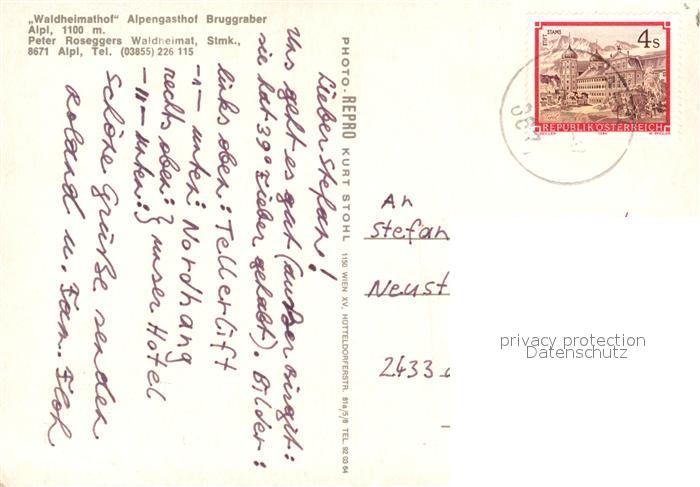 „Waldheimathof" Alpengasthof Bruggraber
Alpl, 1100 m.
Peter Roseggers Waldheimat, Stmk.,
8671 Alpl, Tel. (03855) 226 115
Lieber Stefan!
Uns geht es gut (außer Birgit:
sie hat 39° Fieber gehabt). Bilder:
links oben: Tellerlift
-"- unten: Nordhang
rechts oben: } unser Hotel
-"- unten: }
Schöne Grüße senden
Roland u. Fam.
PHOTO-REPRO KURT STOHL 1150 WIEN XV, HÜTTELDORFERSTR. 81a/5/8 TEL. 92 03 64
4 S
STIFT STAMS
REPUBLIK ÖSTERREICH
An
Stefan
Neust
2433
privacy protection
Datenschutz